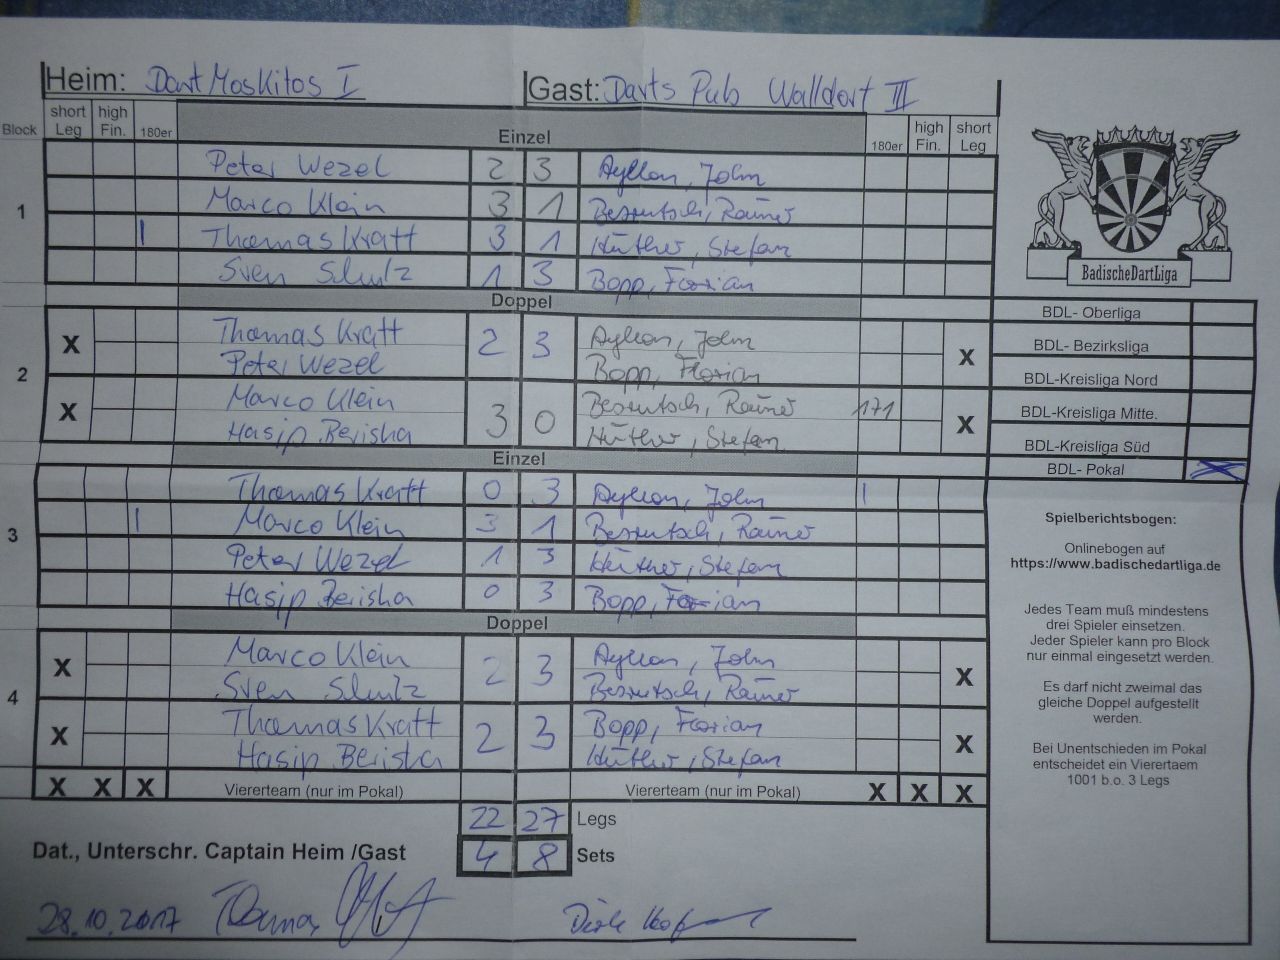 Heim: Dart Moskitos I Gast: Darts Pub Walldorf III
Block short Leg high Fin. 180er Einzel 180er high Fin. short Leg
1
Peter Wezel 2 3 Ayllon, John
Marco Klein 3 1 Besrutsch, Rainer
| Thomas Kratt 3 1 Hüther, Stefan
Sven Schulz 1 3 Bopp, Florian
BadischeDartLiga
Doppel
2
X Thomas Kratt 2 3 Ayllon, John X
Peter Wezel Bopp, Florian
X Marco Klein 3 0 Besrutsch, Rainer 171 X
Hasip Berisha Hüther, Stefan
BDL- Oberliga
BDL- Bezirksliga
BDL-Kreisliga Nord
BDL-Kreisliga Mitte.
BDL-Kreisliga Süd
BDL- Pokal X
Einzel
3
Thomas Kratt 0 3 Ayllon, John |
| Marco Klein 3 1 Besrutsch, Rainer
Peter Wezel 1 3 Hüther, Stefan
Hasip Berisha 0 3 Bopp, Florian
Doppel
4
X Marco Klein 2 3 Ayllon, John X
Sven Schulz Besrutsch, Rainer
X Thomas Kratt 2 3 Bopp, Florian X
Hasip Berisha Hüther, Stefan
X X X Viererteam (nur im Pokal) Viererteam (nur im Pokal) X X X
22 27 Legs
Dat., Unterschr. Captain Heim /Gast 4 8 Sets
28.10.2017 Thomas Dirk
Spielberichtsbogen:
Onlinebogen auf
https://www.badischedartliga.de
Jedes Team muß mindestens
drei Spieler einsetzen.
Jeder Spieler kann pro Block
nur einmal eingesetzt werden.
Es darf nicht zweimal das
gleiche Doppel aufgestellt
werden.
Bei Unentschieden im Pokal
entscheidet ein Vierertaem
1001 b.o. 3 Legs